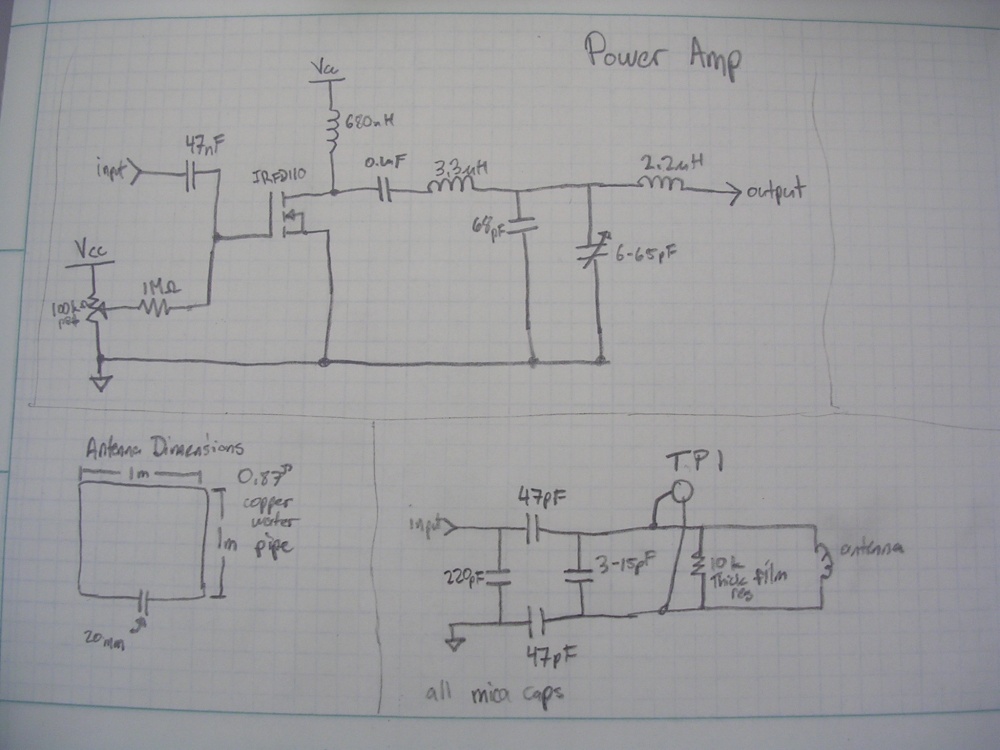 Power Amp
Vcc
680nH
47nF
input
IRFD110
0.1uF
3.3uH
2.2uH
output
68pF
6-65pF
Vcc
1MΩ
100kΩ
pot
Antenna Dimensions
1m
0.87"
copper
water
pipe
1m
20mm
TP1
47pF
input
220pF
3-15pF
10k
Thick film
res
antenna
47pF
all mica caps